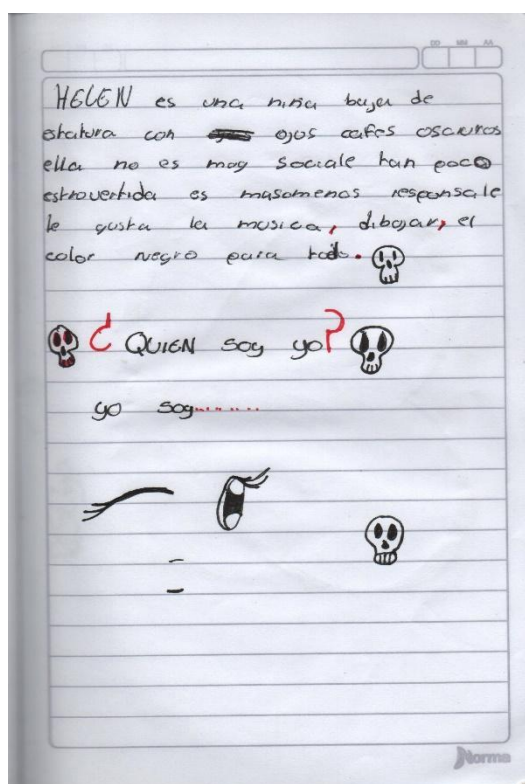 DD MM AA
HELEN es una niña baja de
estatura con ojos cafes oscuros
ella no es muy sociale tan poco
estrovertida es masomenos responsale
le gusta la musica, dibojar, el
color negro para todo.
¿QUIEN soy yo?
yo soy........
Norma